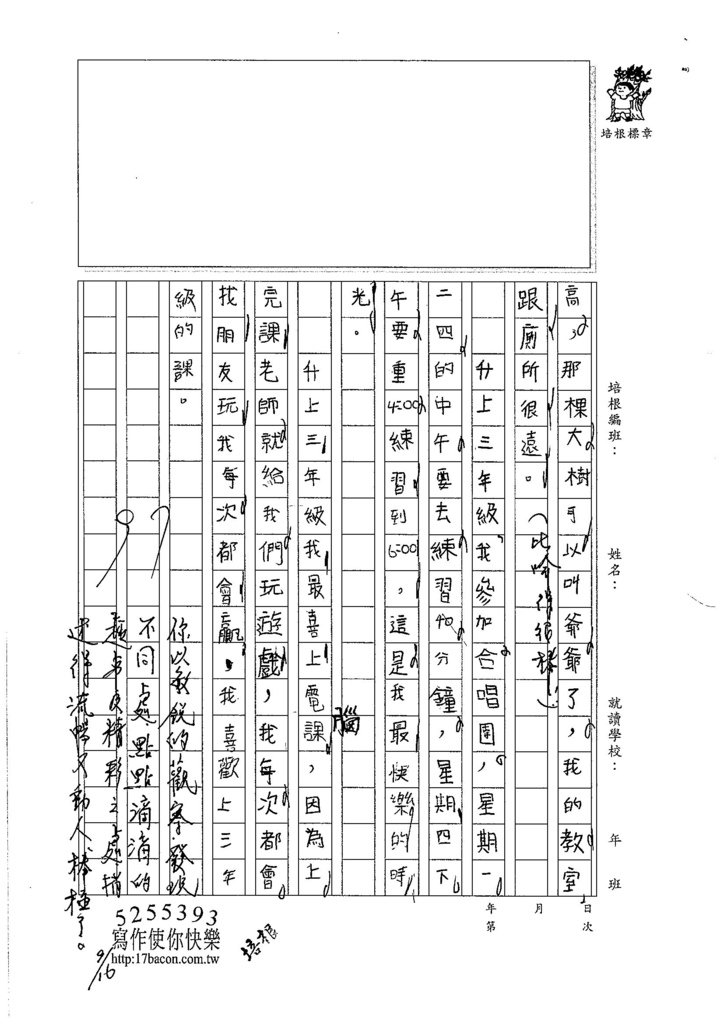 培根標章
培根編班：
姓名：
就讀學校：
年
班
年
月
日
第
次
高，那棵大樹可以叫爺爺了，我的教室
跟廁所很遠。（比喻得很棒！）
升上三年級我參加合唱團，星期一
二四的中午要去練習40分鐘，星期四下
午要重4:00練習到6:00，這是我最快樂的時
光。
升上三年級我最喜上電腦課，因為上
完課老師就給我們玩遊戲，我每次都會
找朋友玩我每次都會贏，我喜歡上三年
級的課。
97
你以敏銳的觀察發現
不同處點點滴滴的
趣事及精彩之處描
述得流暢又動人棒極了。
9/16
5255393
寫作使你快樂
http:17bacon.com.tw
培根